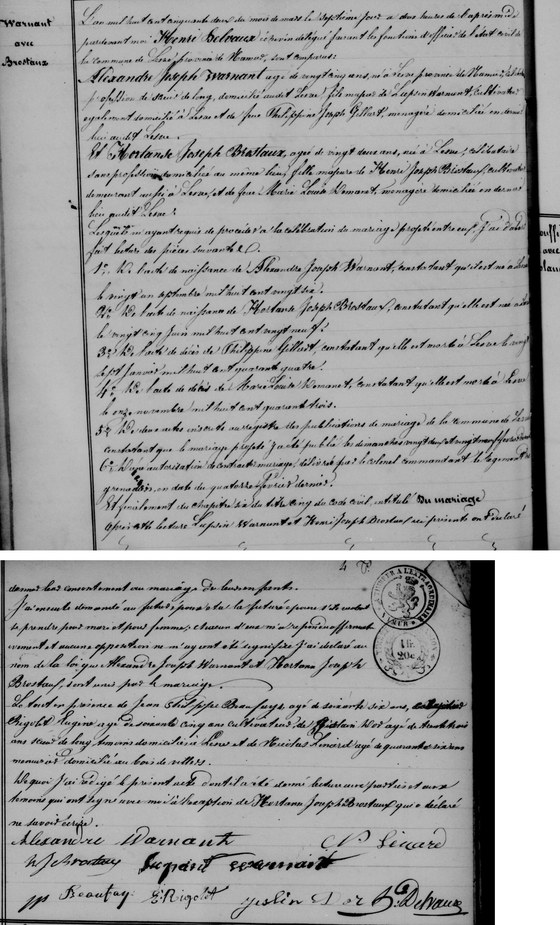 Warnant
avec
Brostaux
L'an mil huit cent cinquante deux du mois de mars le septième jour à deux heures de l'après midi
pardevant moi Henri Delvaux échevin délégué faisant les fonctions d'officier de l'état civil de
la commune de Lesve province de Namur, sont comparus:
Alexandre Joseph Warnant âgé de vingt cinq ans, né à Lesve province de Namur,
profession de scieur de long, domicilié audit Lesve, fils majeur de Lupsin Warnant, cultivateur
également domicilié à Lesve et de feue Philippine Joseph Gilbert, menagère domiciliée en dernier
lieu audit Lesve.
Et Hortanse Joseph Brostaux, agée de vingt deux ans, née à Lesve, célibataire
sans profession domiciliée au même lieu, fille majeure de Henri Joseph Brostaux, cultivateur
demeurant aussi à Lesve, et de feue Marie Louise Wemanet, menagère domiciliée en dernier
lieu audit Lesve.
Lesquels m'ayant requis de procéder à la célébration du mariage projeté entre eux, j'ai d'abord
fait lecture des pièces suivantes:
1° De l'acte de naissance de Alexandre Joseph Warnant, constatant qu'il est né à
le vingt un septembre mil huit cent vingt six.
2° De l'acte de naissance de Hortanse Joseph Brostaux, constatant qu'elle est née à
le vingt cinq juin mil huit cent vingt neuf.
3° De l'acte de décès de Philippine Gilbert, constatant qu'elle est morte à Lesve le vingt
sept janvier mil huit cent quarante quatre.
4° De l'acte de décès de Marie Louise Wemanet, constatant qu'elle est morte à Lesve
le onze novembre mil huit cent quarante trois.
5° De deux actes inscrits au registre des publications de mariage de la commune de Lesve
constatant que le mariage projeté j'a été publié les dimanches vingt deux et vingt neuf
6° D'une autorisation de contracter mariage, délivrée par le colonel commandant le régiment
grenadiers, en date du quatorze février dernier.
Et finalement du chapitre six du titre cinq du code civil, intitulé du mariage
Après cette lecture Lupsin Warnant et Henri Joseph Brostaux ici présents ont déclaré
4
donner leur consentement au mariage de leurs enfants.
J'ai ensuite demandé au futur époux et à la future épouse s'ils veulent
se prendre pour mari et pour femme; chacun d'eux m'a répondu affirmati
vement et aucune opposition ne m'ayant été signifiée j'ai déclaré au
nom de la loi que Alexandre Joseph Warnant et Hortanse Joseph
Brostaux, sont unis par le mariage.
Le tout en présence de Jean Philippe Beaufays agé de soixante six ans,
Rigolet Eugène agé de soixante cinq ans cultivateurs, de Gislain Dor agé de trente trois
ans scieur de long, témoins domiciliés à Lesve et de Nicolas Linard agé de quarante six ans
menuisier domicilié au bois de villers.
De quoi j'ai rédigé le présent acte dont il a été donné lecture aux parties et aux
témoins qui ont signé avec moi à l'exception de Hortanse Joseph Brostaux qui a déclaré
ne savoir écrire.
Alexandre Warnant
N Linard
H J Brostaux
Lupsin Warnant
Beaufay
E Rigolet
Geslin Dor
H Delvaux